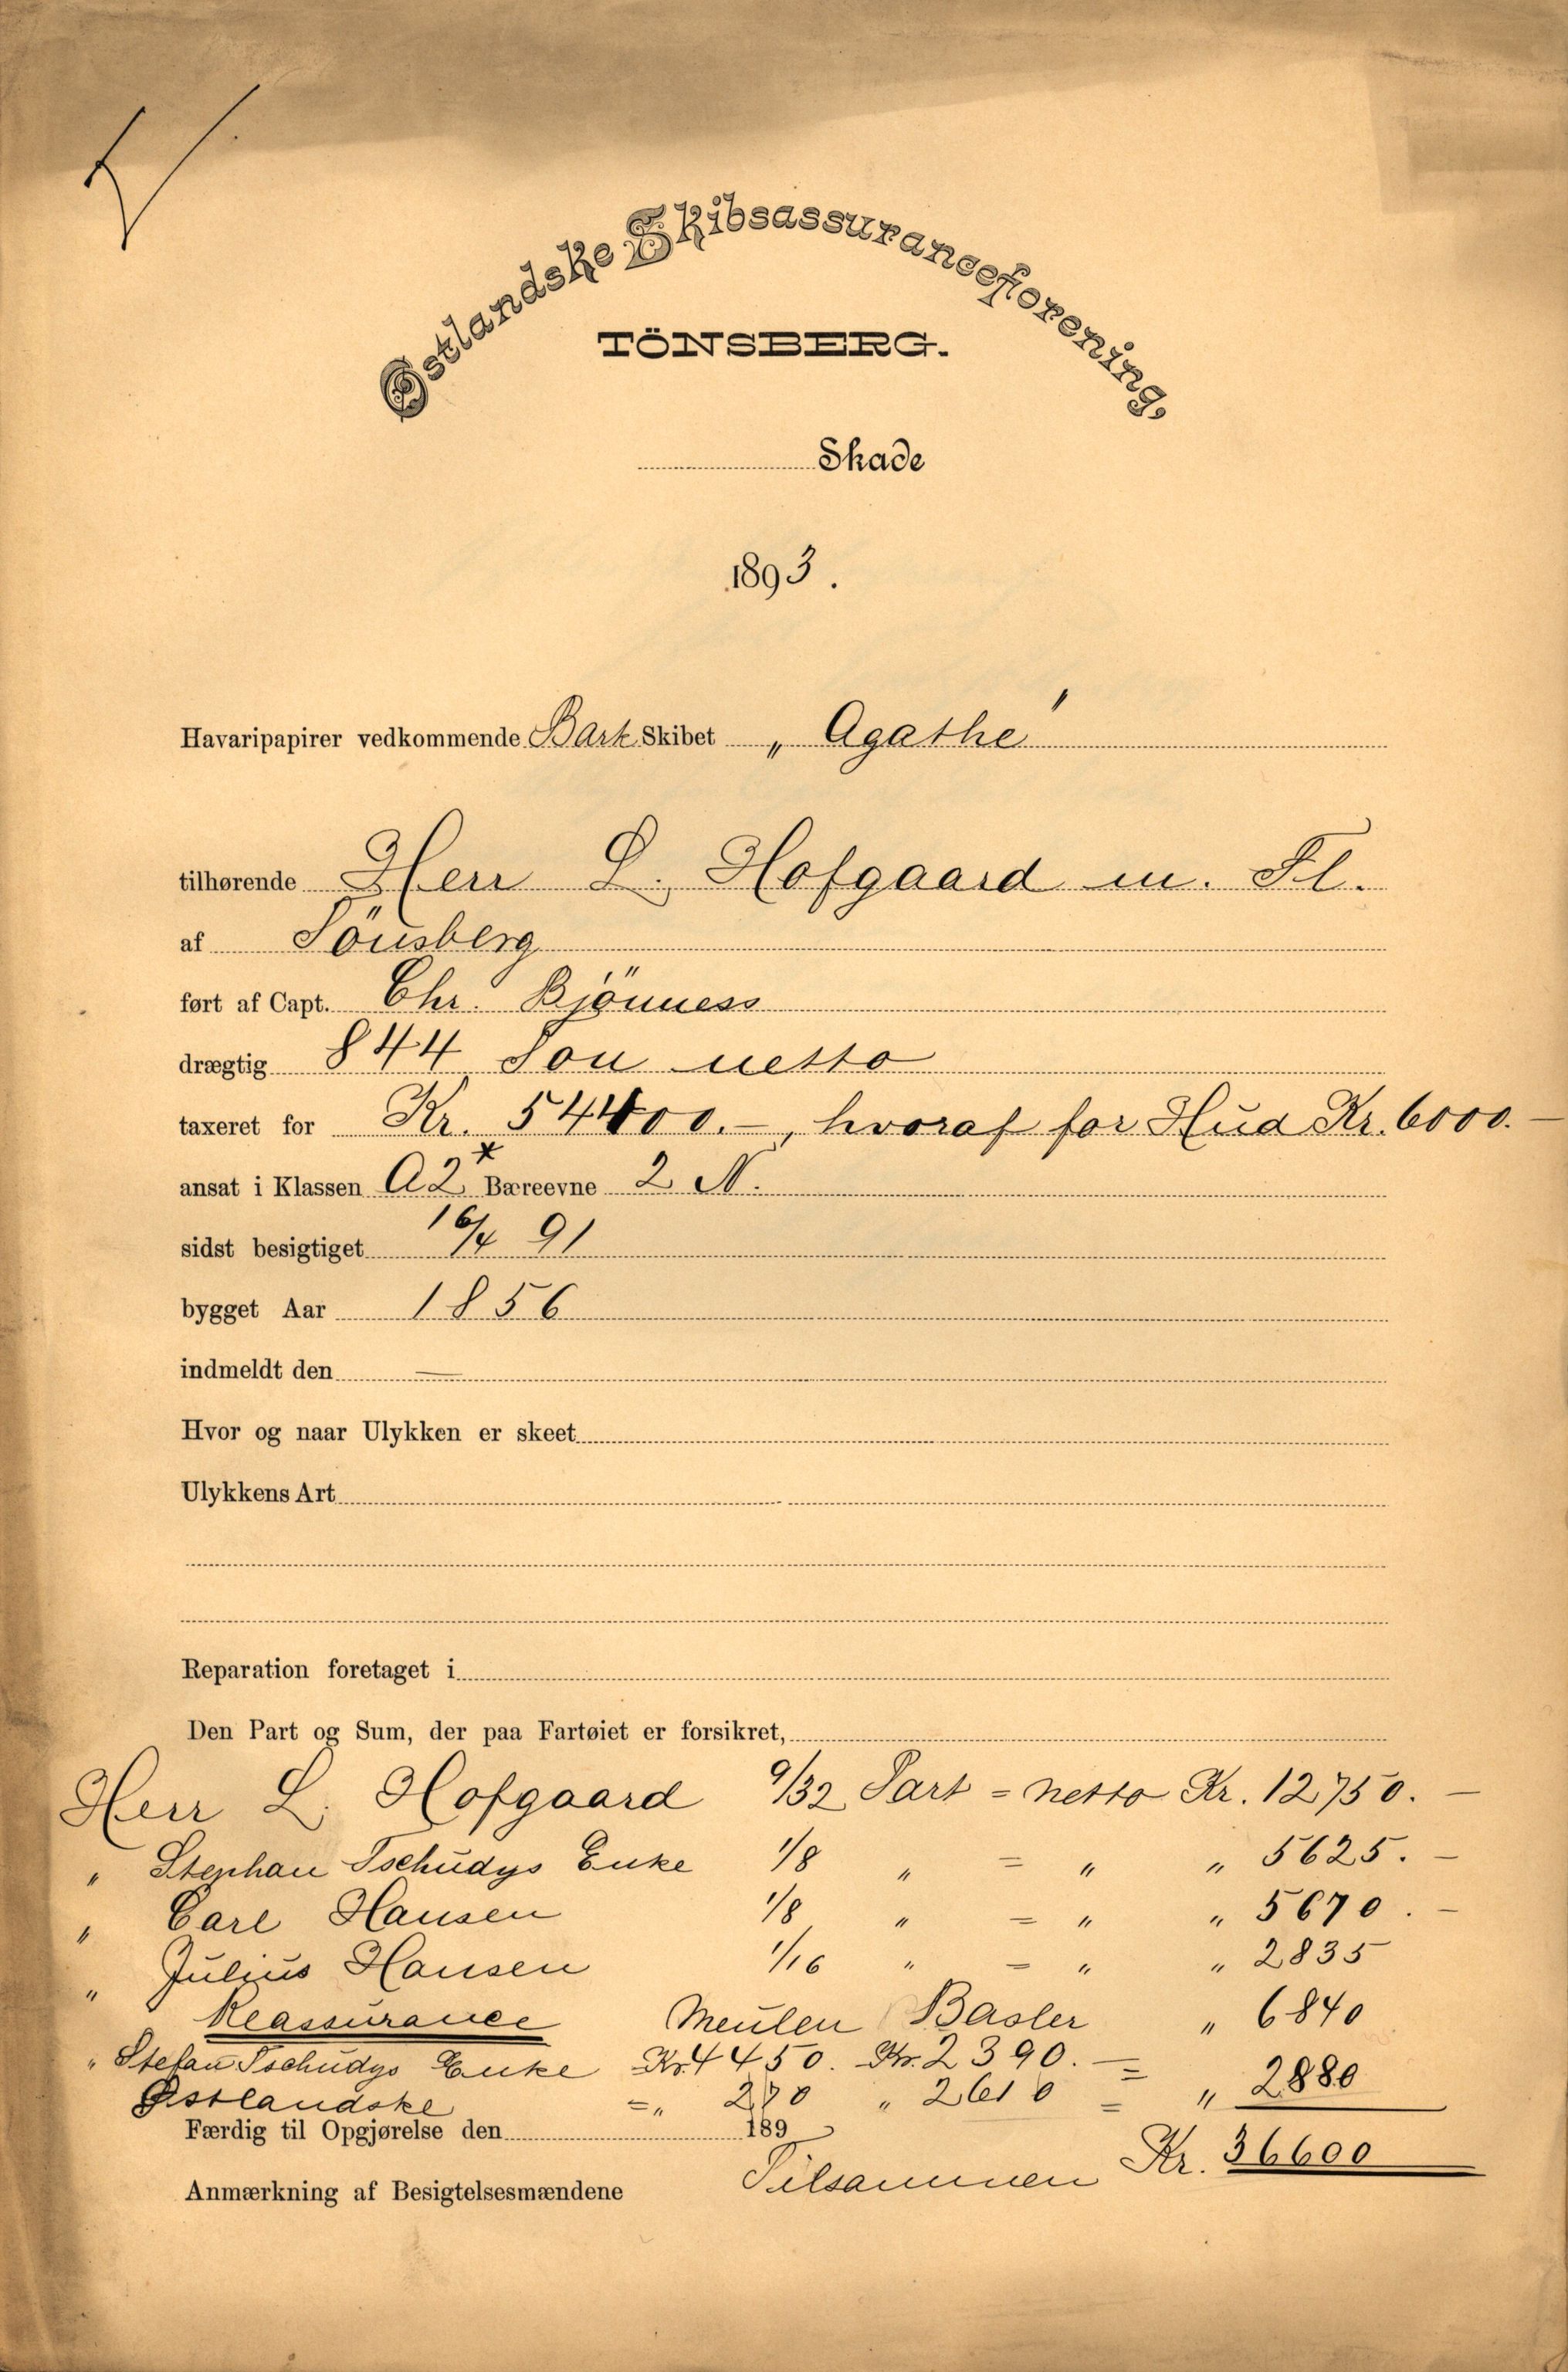 Østlandske Skibsassuranceforening,
TÖNSBERG.
Skade
1893.
Havaripapirer vedkommende Bark Skibet „Agathe"
tilhørende Herr L. Hofgaard m. Fl.
af Tönsberg
ført af Capt. Chr. Bjönness
drægtig 844 Ton netto
taxeret for Kr. 54400.–, hvoraf for Hud Kr. 6000.–
ansat i Klassen A2* Bæreevne 2 N.
sidst besigtiget 16/4 91
bygget Aar 1856
indmeldt den —
Hvor og naar Ulykken er skeet
Ulykkens Art
Reparation foretaget i
Den Part og Sum, der paa Fartøiet er forsikret,
Herr L. Hofgaard 9/32 Part = netto Kr. 12750.–
„ Stephan Tschudys Enke 1/8 „ = „ „ 5625.–
„ Carl Hansen 1/8 „ = „ „ 5670.–
„ Julius Hansen 1/16 „ = „ „ 2835
Reassurance Meulen Basler „ 6840
„ Stefan Tschudys Enke Kr. 4450. Kr. 2390.–
Østlandske = „ 270 „ 2610 = „ 2880
Færdig til Opgjørelse den 189
Tilsammen Kr. 36600
Anmærkning af Besigtelsesmændene